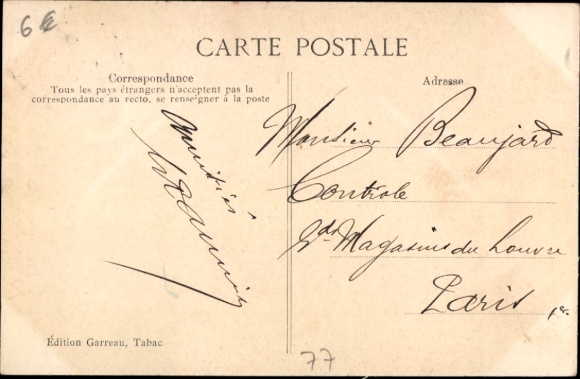 6€
CARTE POSTALE
Correspondance
Tous les pays étrangers n'acceptent pas la
correspondance au recto, se renseigner à la poste
Amitiés
Adresse
Monsieur Beaujard
Contrôle
Gds Magasins du Louvre
Paris 1er
Édition Garreau, Tabac
77